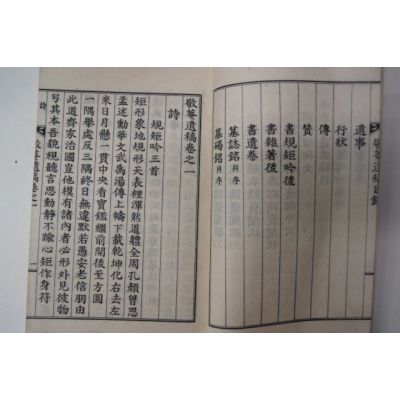 敬菴遺稿目錄
遺事
行狀
傳
贊
書規矩吟後
書雜著後
書遺卷
墓誌銘 并序
墓碣銘 并序
敬菴遺稿卷之一
詩
規矩吟三首
矩形象地規形天表裡渾然道體全周孔顏曾思
孟述勳華文武禹湯傳上蟠下載乾坤化右去左
來日月懸一貫中央看寶鑑繼前開後至方圓
一隅舉處反三隅終日無違默若愚安老信朋由
此道齊家治國豈他模有諸內者必形外見彼物
兮其本吾貌視聽言思動靜不踰心矩作身符
詩 敬菴遺稿卷之一 一